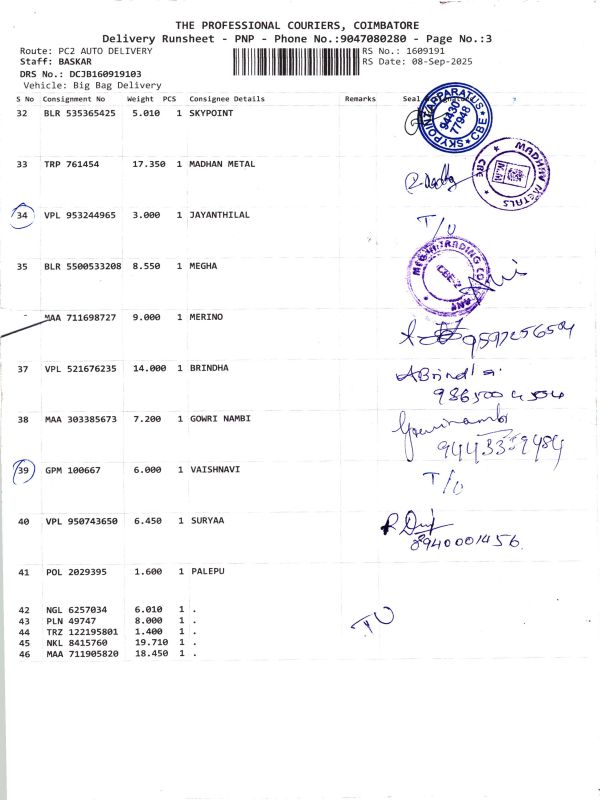 THE PROFESSIONAL COURIERS, COIMBATORE
Delivery Runsheet - PNP - Phone No.:9047080280 - Page No.:3
Route: PC2 AUTO DELIVERY RS No.: 1609191
Staff: BASKAR RS Date: 08-Sep-2025
DRS No.: DCJB160919103
Vehicle: Big Bag Delivery
S No Consignment No Weight PCS Consignee Details Remarks Seal
32 BLR 535365425 5.010 1 SKYPOINT
SKYPOINT APPARATUS CBE 94430 77948
33 TRP 761454 17.350 1 MADHAN METAL
MADHAV METALS CBE
34 VPL 953244965 3.000 1 JAYANTHILAL T/U
35 BLR 5500533208 8.550 1 MEGHA
TRADING CO CBE-2
MAA 711698727 9.000 1 MERINO
9597256504
37 VPL 521676235 14.000 1 BRINDHA ABrindha
9865004504
38 MAA 303385673 7.200 1 GOWRI NAMBI Gowrinambi
9443339484
39 GPM 100667 6.000 1 VAISHNAVI T/U
40 VPL 950743650 6.450 1 SURYAA
8940001456
41 POL 2029395 1.600 1 PALEPU
42 NGL 6257034 6.010 1 .
43 PLN 49747 8.000 1 . TU
44 TRZ 122195801 1.400 1 .
45 NKL 8415760 19.710 1 .
46 MAA 711905820 18.450 1 .